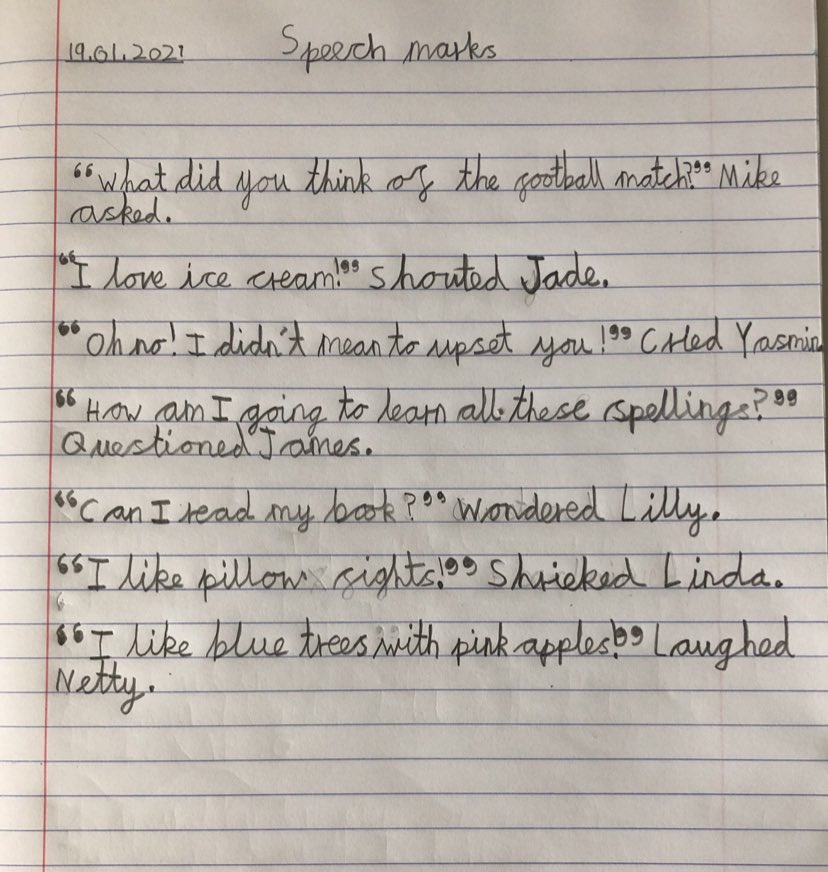 19.01.2021 Speech marks
“What did you think of the football match?” Mike
asked.
“I love ice cream!” Shouted Jade.
“Oh no! I didn't mean to upset you!” Cried Yasmin
“How am I going to learn all these spellings?”
Questioned James.
“Can I read my book?” Wondered Lilly.
“I like pillow fights!” Shrieked Linda.
“I like blue trees with pink apples!” Laughed
Netty.